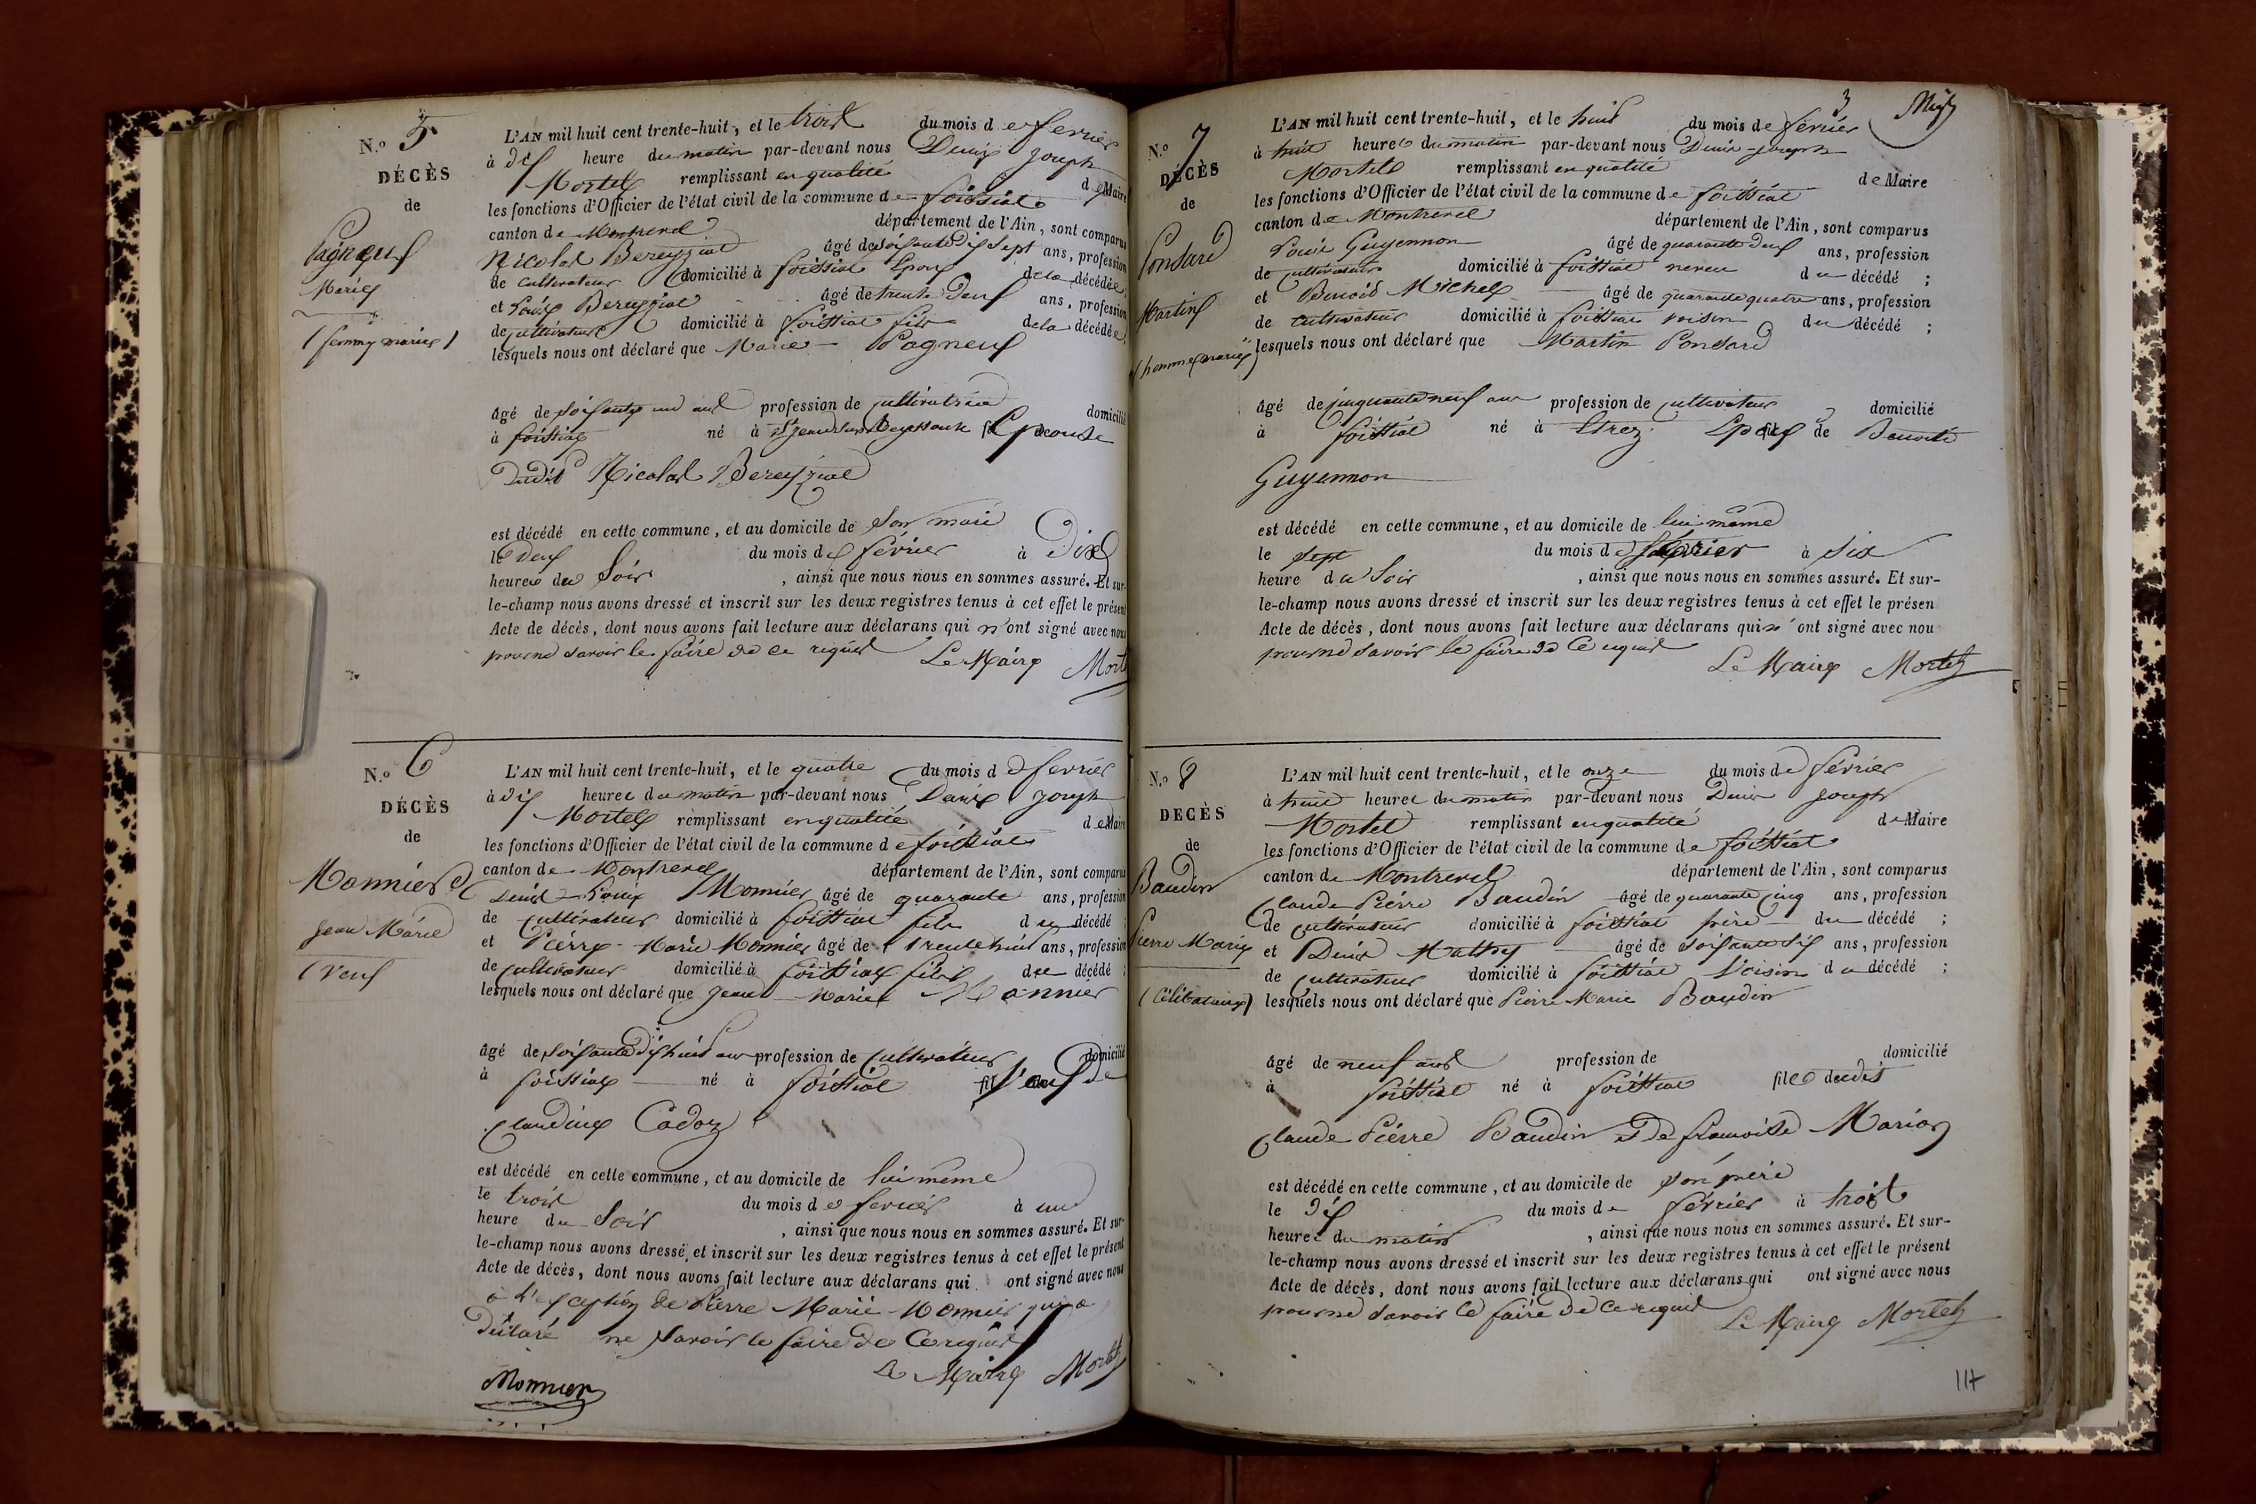 N.º 5
DÉCÈS
de
Pagneux
Marie
(femme mariée)
L'AN mil huit cent trente-huit, et le trois du mois de fevrier
à dix heure du matin par-devant nous Denis Joseph
Mortel remplissant en qualité de Maire
les fonctions d'Officier de l'état civil de la commune de foissiat
canton de Montrevel département de l'Ain, sont comparus
Nicolas Bereyziat âgé de soixante dix sept ans, profession
de cultivateur domicilié à foissiat Epoux de la décédée;
et Louis Bereyziat âgé de trente deux ans, profession
de cultivateur domicilié à foissiat fils de la décédée;
lesquels nous ont déclaré que Marie Pagneux
âgé de soixante un ans profession de cultivatrice domicilié
à foissiat né à St jean sur Reyssouze fil Epouse
dudit Nicolas Bereyziat
est décédé en cette commune, et au domicile de son mari
le deux du mois de février à Dix
heures du Soir, ainsi que nous nous en sommes assuré. Et sur-
le-champ nous avons dressé et inscrit sur les deux registres tenus à cet effet le présent
Acte de décès, dont nous avons fait lecture aux déclarans qui n'ont signé avec nous
pour ne savoir le faire de ce requis Le Maire Mortel
N.º 6
DÉCÈS
de
Monnier
Jean Marie
(veuf
L'AN mil huit cent trente-huit, et le quatre du mois de fevrier
à dix heures du matin par-devant nous Denis Joseph
Mortel remplissant en qualité de Maire
les fonctions d'Officier de l'état civil de la commune de foissiat
canton de Montrevel département de l'Ain, sont comparus
Denis Louis Monnier âgé de quarante ans, profession
de cultivateur domicilié à foissiat fils du décédé;
et Pierre Marie Monnier âgé de trente huit ans, profession
de cultivateur domicilié à foissiat fils du décédé;
lesquels nous ont déclaré que Jean Marie Monnier
âgé de soixante dix huit ans profession de cultivateur domicilié
à foissiat né à foissiat fil Veuf de
Claudine Cadoz
est décédé en cette commune, et au domicile de lui même
le trois du mois de fevrier à un
heure du Soir, ainsi que nous nous en sommes assuré. Et sur-
le-champ nous avons dressé et inscrit sur les deux registres tenus à cet effet le présent
Acte de décès, dont nous avons fait lecture aux déclarans qui ont signé avec nous
à l'exception de Pierre Marie Monnier qui a
déclaré ne savoir le faire de ce requis
Le Maire Mortel
Monnier
3
N.º 7
DÉCÈS
de
Pondard
Martin
(homme marié)
L'AN mil huit cent trente-huit, et le huit du mois de février
à huit heures du matin par-devant nous Denis Joseph
Mortel remplissant en qualité de Maire
les fonctions d'Officier de l'état civil de la commune de foissiat
canton de Montrevel département de l'Ain, sont comparus
Louis Guyennon âgé de quarante deux ans, profession
de cultivateur domicilié à foissiat neveu du décédé;
et Benoit Michel âgé de quarante quatre ans, profession
de cultivateur domicilié à foissiat voisin du décédé;
lesquels nous ont déclaré que Martin Pondard
âgé de cinquante neuf ans profession de cultivateur domicilié
à foissiat né à Etrez Epoux fil de Benoite
Guyennon
est décédé en cette commune, et au domicile de lui même
le sept du mois de février à six
heure du Soir, ainsi que nous nous en sommes assuré. Et sur-
le-champ nous avons dressé et inscrit sur les deux registres tenus à cet effet le présen
Acte de décès, dont nous avons fait lecture aux déclarans qui n'ont signé avec nou
pour ne savoir le faire de ce requis Le Maire Mortel
N.º 8
DÉCÈS
de
Baudin
Pierre Marie
(Célibataire)
L'AN mil huit cent trente-huit, et le onze du mois de février
à huit heures du matin par-devant nous Denis Joseph
Mortel remplissant en qualité de Maire
les fonctions d'Officier de l'état civil de la commune de foissiat
canton de Montrevel département de l'Ain, sont comparus
Claude Pierre Baudin âgé de quarante cinq ans, profession
de cultivateur domicilié à foissiat père du décédé;
et Denis Mathy âgé de soixante six ans, profession
de cultivateur domicilié à foissiat Voisin du décédé;
lesquels nous ont déclaré que Pierre Marie Baudin
âgé de neuf ans profession de domicilié
à foissiat né à foissiat fils dudit
Claude Pierre Baudin et de francoise Marion
est décédé en cette commune, et au domicile de son père
le dix du mois de février à trois
heures du matin, ainsi que nous nous en sommes assuré. Et sur-
le-champ nous avons dressé et inscrit sur les deux registres tenus à cet effet le présent
Acte de décès, dont nous avons fait lecture aux déclarans qui ont signé avec nous
pour ne savoir le faire de ce requis Le Maire Mortel